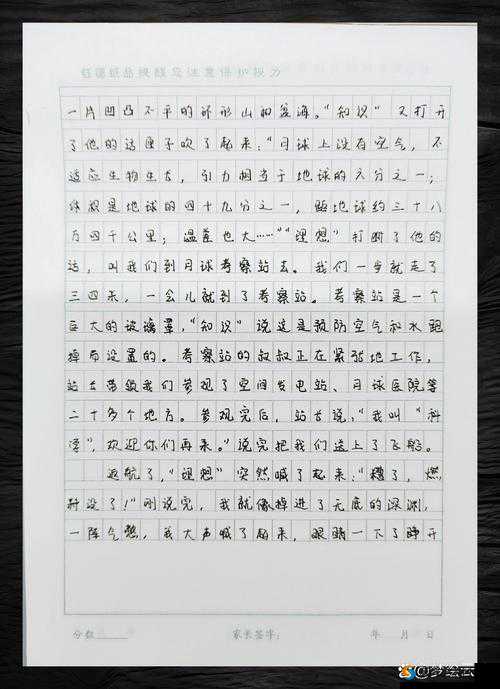 钰璟纸品提醒您注意保护视力
一片凹凸不平的环形山和尘海。“知识”又打开
了他的话匣子吹了起来：“月球上没有空气，不
适应生物生长，引力相当于地球的六分之一；
体积是地球的四十九分之一，距地球约三十八
万四千公里；温差也大……”“理想”打断了他的
话，叫我们到月球考察站去。我们一步就走了
三四米，一会儿就到了考察站。考察站是一个
巨大的玻璃罩，“知识”说这是预防空气和水跑
掉而设置的。考察站的叔叔正在紧张地工作，
站长带领我们参观了空间发电站、月球医院等
二十多个地方。参观完后，站长说：“我叫“科
学”，欢迎你们再来。”说完把我们送上了飞船。
返航了，“理想”突然喊了起来：“糟了，燃
料没了！”刚说完，我就像掉进了无底的深渊，
一阵气憋，我大声喊了起来，眼睛一下了睁开
分数
家长签字：
年 月 日
@梦绘云